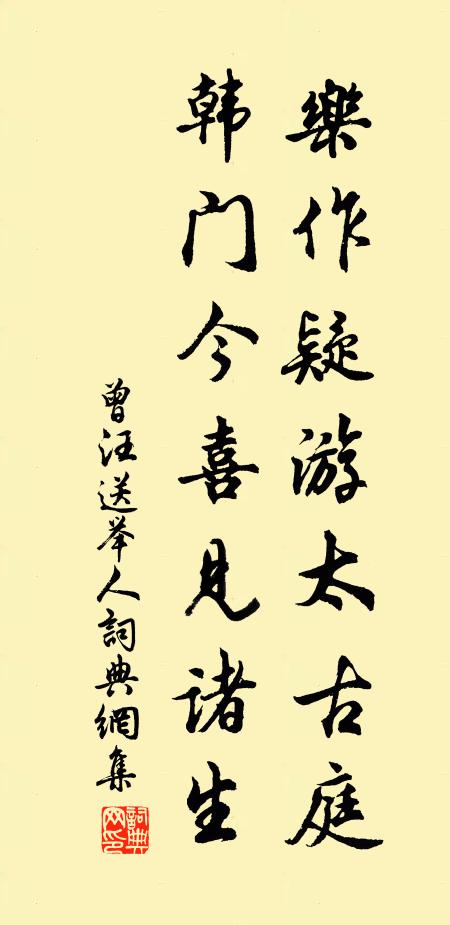 樂作疑游太古庭
韩门今喜見诸生
曾汪送举人詞典網集
詞典网印